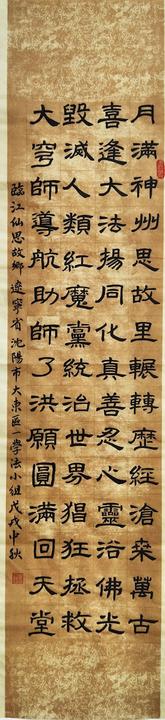 月滿神州思故里輾轉歷經滄桒萬古
喜逢大法揚同化真善忍心靈浴佛光
毀滅人類紅魔黨統治世界猖狂拯救
大穹師導航助師了洪願圓滿回天堂
臨江仙思故鄉遼寧省沈陽市大東區一學法小組戊戌中秋